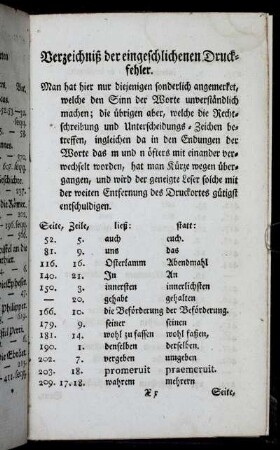 Verzeichniß der eingeschlichenen Druck-
fehler.
Man hat hier nur diejenigen sonderlich angemerket,
welche den Sinn der Worte unverständlich
machen; die übrigen aber, welche die Recht-
schreibung und Unterscheidungs-Zeichen be-
treffen, ingleichen da in den Endungen der
Worte das m und n öfters mit einander ver-
wechselt worden, hat man Kürze wegen über-
gangen, und wird der geneigte Leser solche mit
der weiten Entfernung des Druckortes gütigst
entschuldigen.
Seite, Zeile, ließ: statt:
52. 5. auch euch.
81. 9. uns das
116. 16. Osterlamm Abendmahl
140. 21. In An
150. 3. innersten innerlichsten
— 20. gehabt gehalten
166. 10. die Beförderung der Beförderung.
179. 9. seiner seinen
181. 14. wohl zu fassen wohl fassen,
190. 1. denselben derselben.
202. 7. vergeben umgeben
203. 18. promeruit praemeruit.
209. 17. 18. wahrem mehrern
Seite,